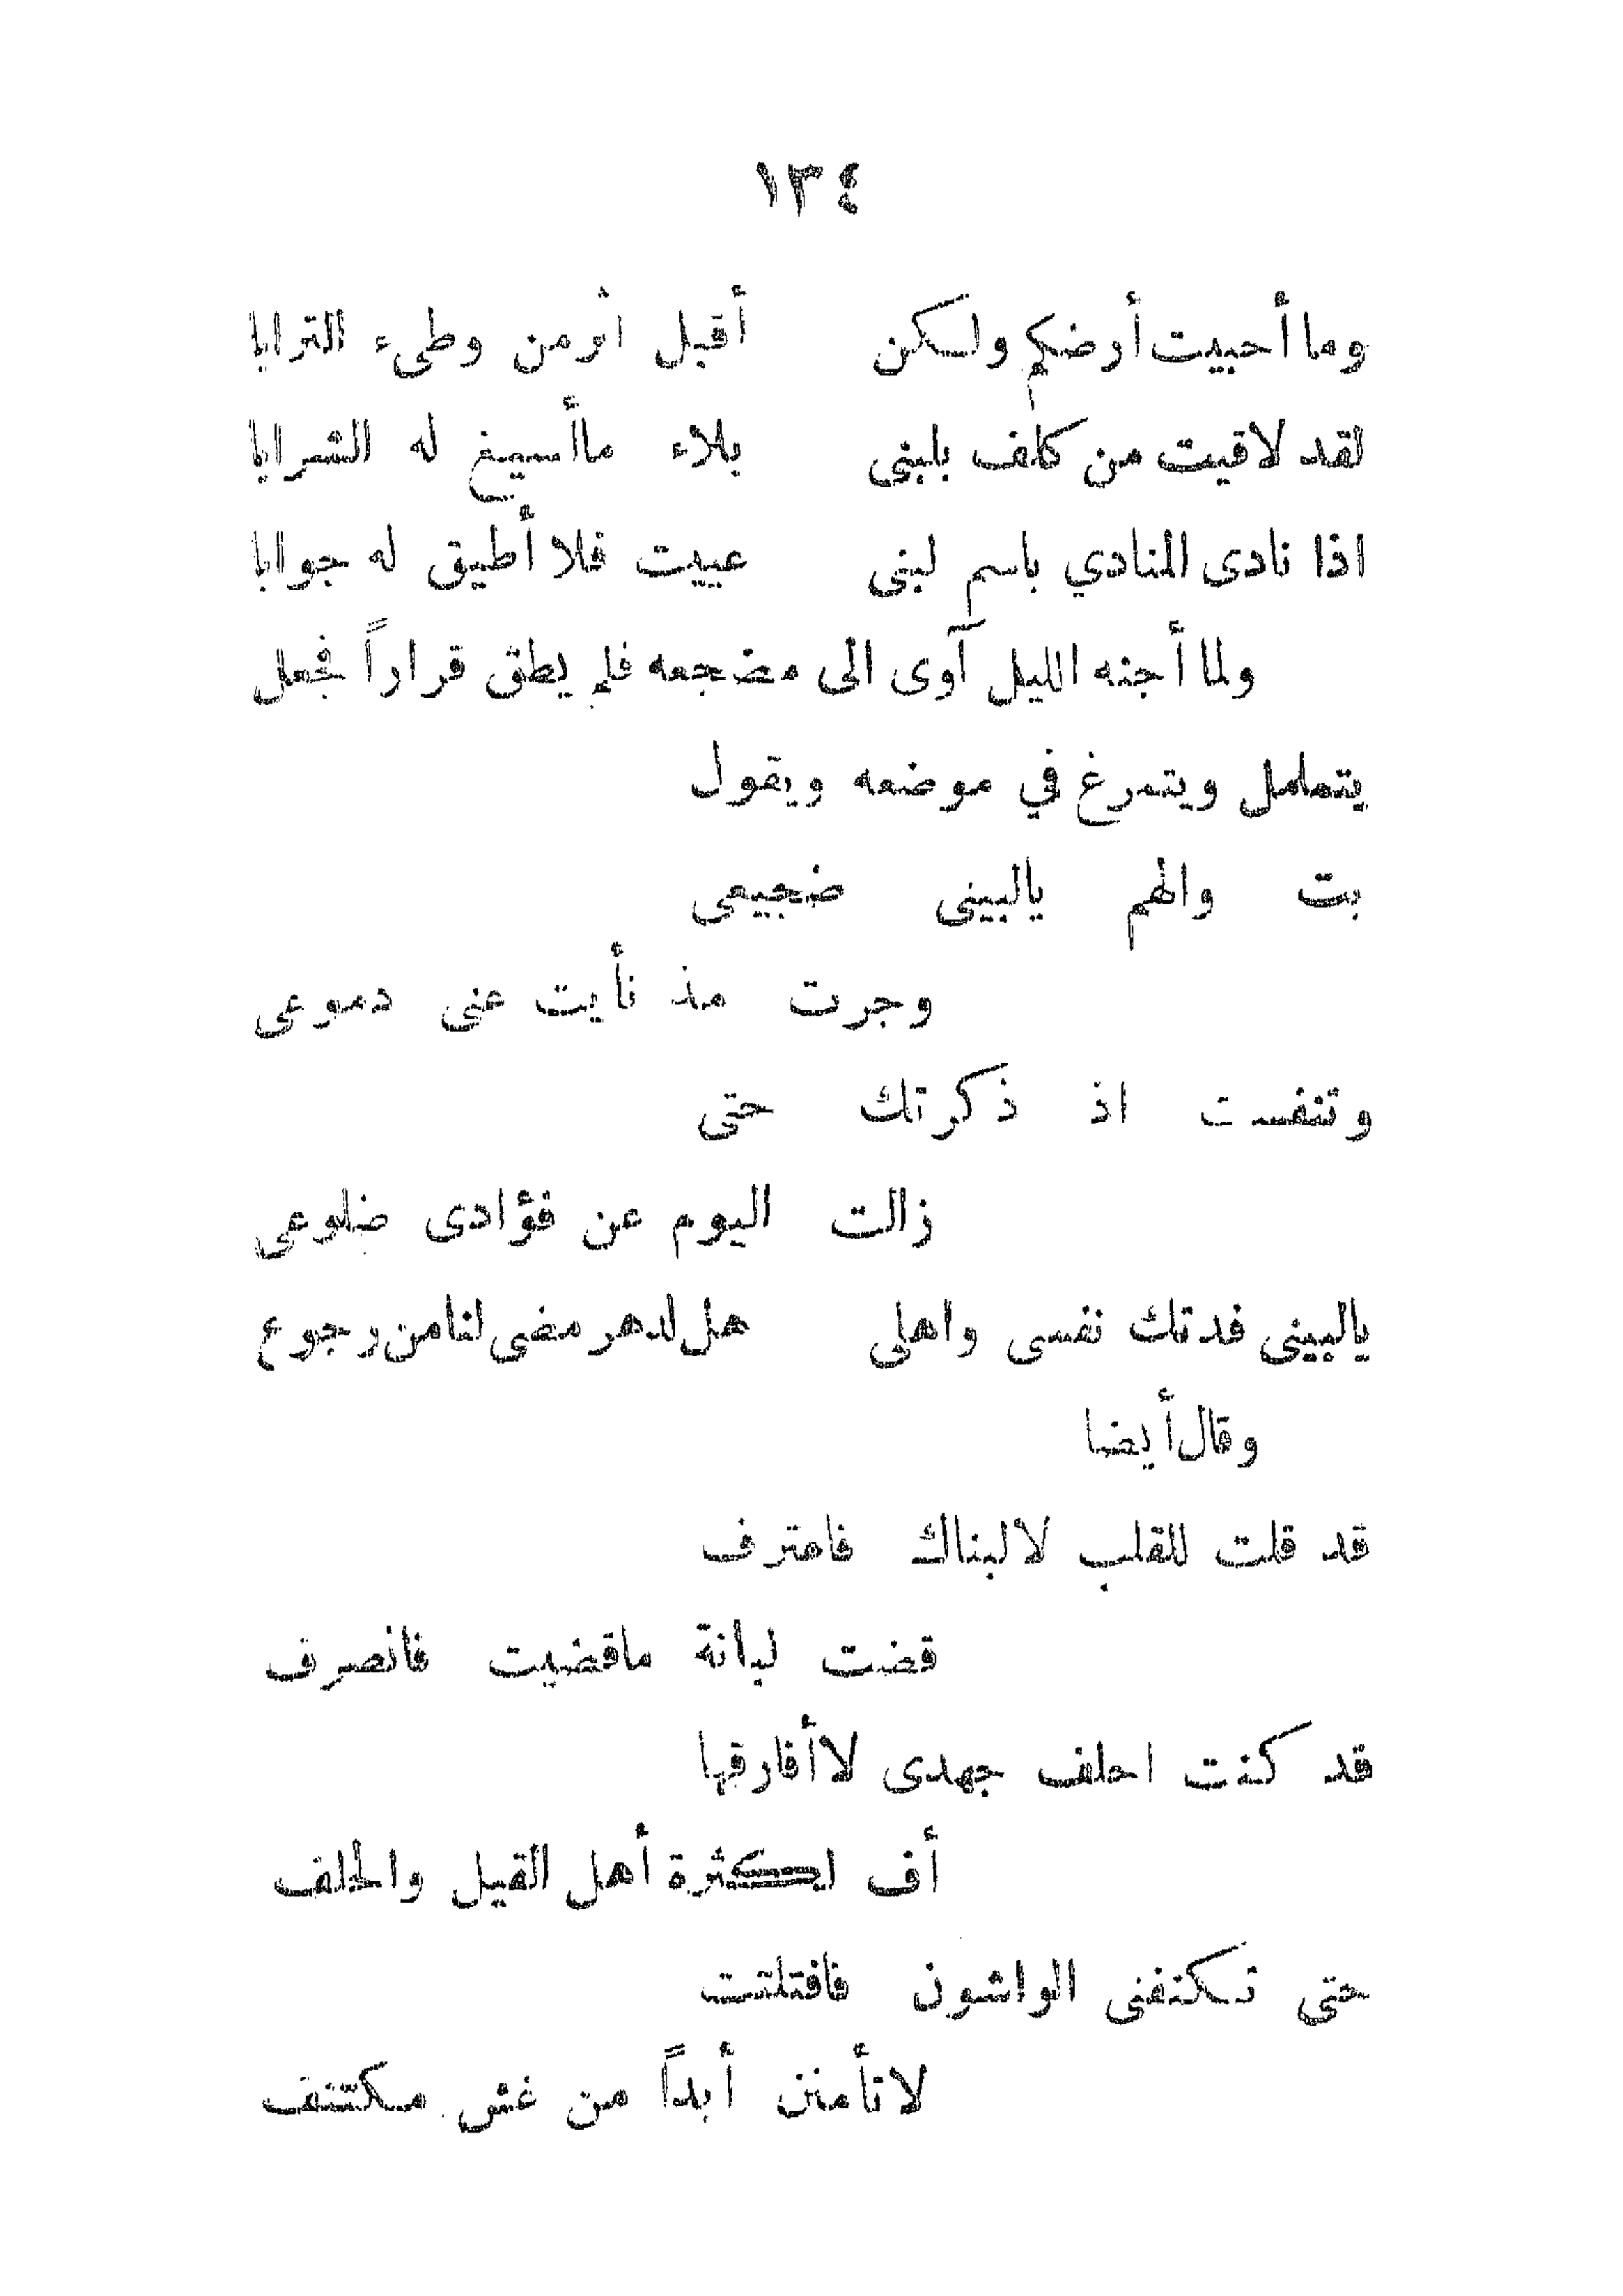 ١٣٤
وما أحببت أرضكم ولكن أقبل اثر من وطىء الترابا
لقد لاقيت من كلف بلبنى بلاء ماأسيغ له الشرابا
اذا نادى المنادي باسم لبنى عييت فلا أطيق له جوابا
ولما أجنه الليل آوى الى مضجعه فلم يطق قراراً فجعل
يتململ ويتمرغ في موضعه ويقول
بت والهم يالبينى ضجيعى
وجرت مذ نأيت عنى دموعى
وتنفست اذ ذكرتك حتى
زالت اليوم عن فؤادى ضلوعى
يالبينى فدتك نفسى واهلى هل لدهر مضى لنا من رجوع
وقال أيضا
قد قلت للقلب لالبناك فاعترف
قضت لبانة ماقضيت فانصرف
قد كنت احلف جهدى لاأفارقها
أف لكثرة أهل القيل والحلف
حتى تكنفنى الواشون فافتلتت
لاتأمنن أبداً من غش مكتنف